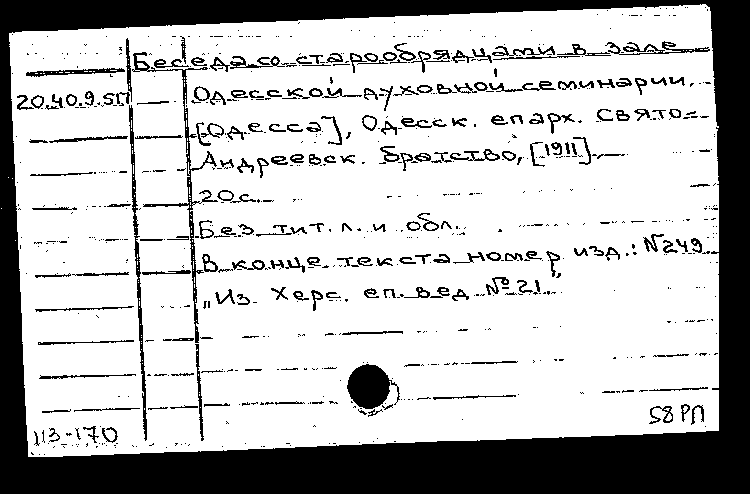 Беседа со старообрядцами в зале
20.40.9.5П Одесской духовной семинарии.
[Одесса], Одесск. епарх. Свято=
Андреевск. братство, [1911].
20с.
Без тит. л. и обл.
В конце текста номер изд.: №249
„Из. Херс. еп. вед. №21."
113-170
58 РП